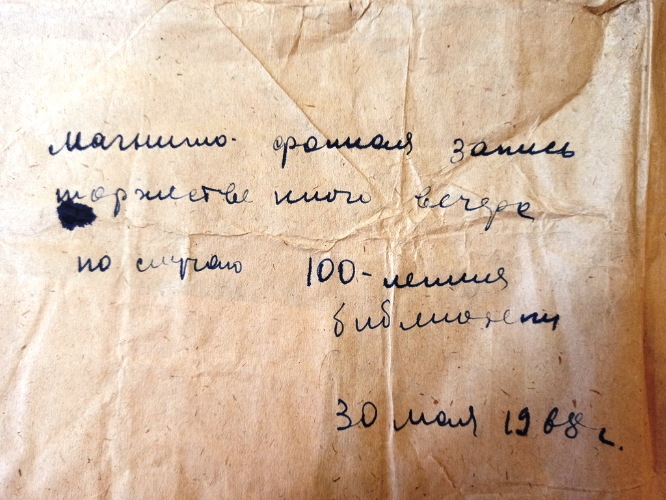 Магнито- фонная запись
торжестве нного вечера
по случаю 100-летия
библиотеки
30 мая 1968 г.